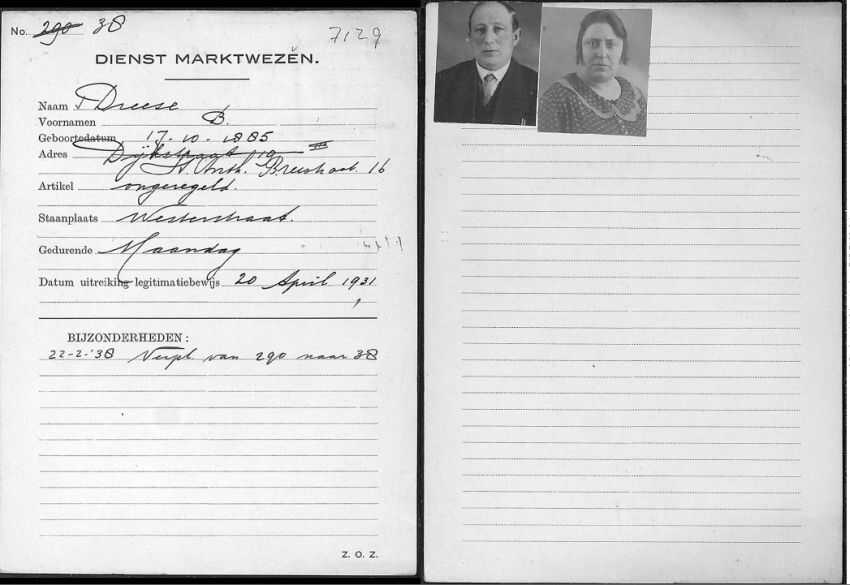 No. 290 38
7129
DIENST MARKTWEZEN.
Naam Dreese
Voornamen B.
Geboortedatum 17-10-1885
Adres Dijkstraat 19 III
St. Anth. Breestraat 16
Artikel ongeregeld.
Staanplaats Westerstraat.
Gedurende Maandag
Datum uitreiking legitimatiebewijs 20 April 1931
BIJZONDERHEDEN:
22-2-'38 Verpl. van 290 naar 38
Z. O. Z.